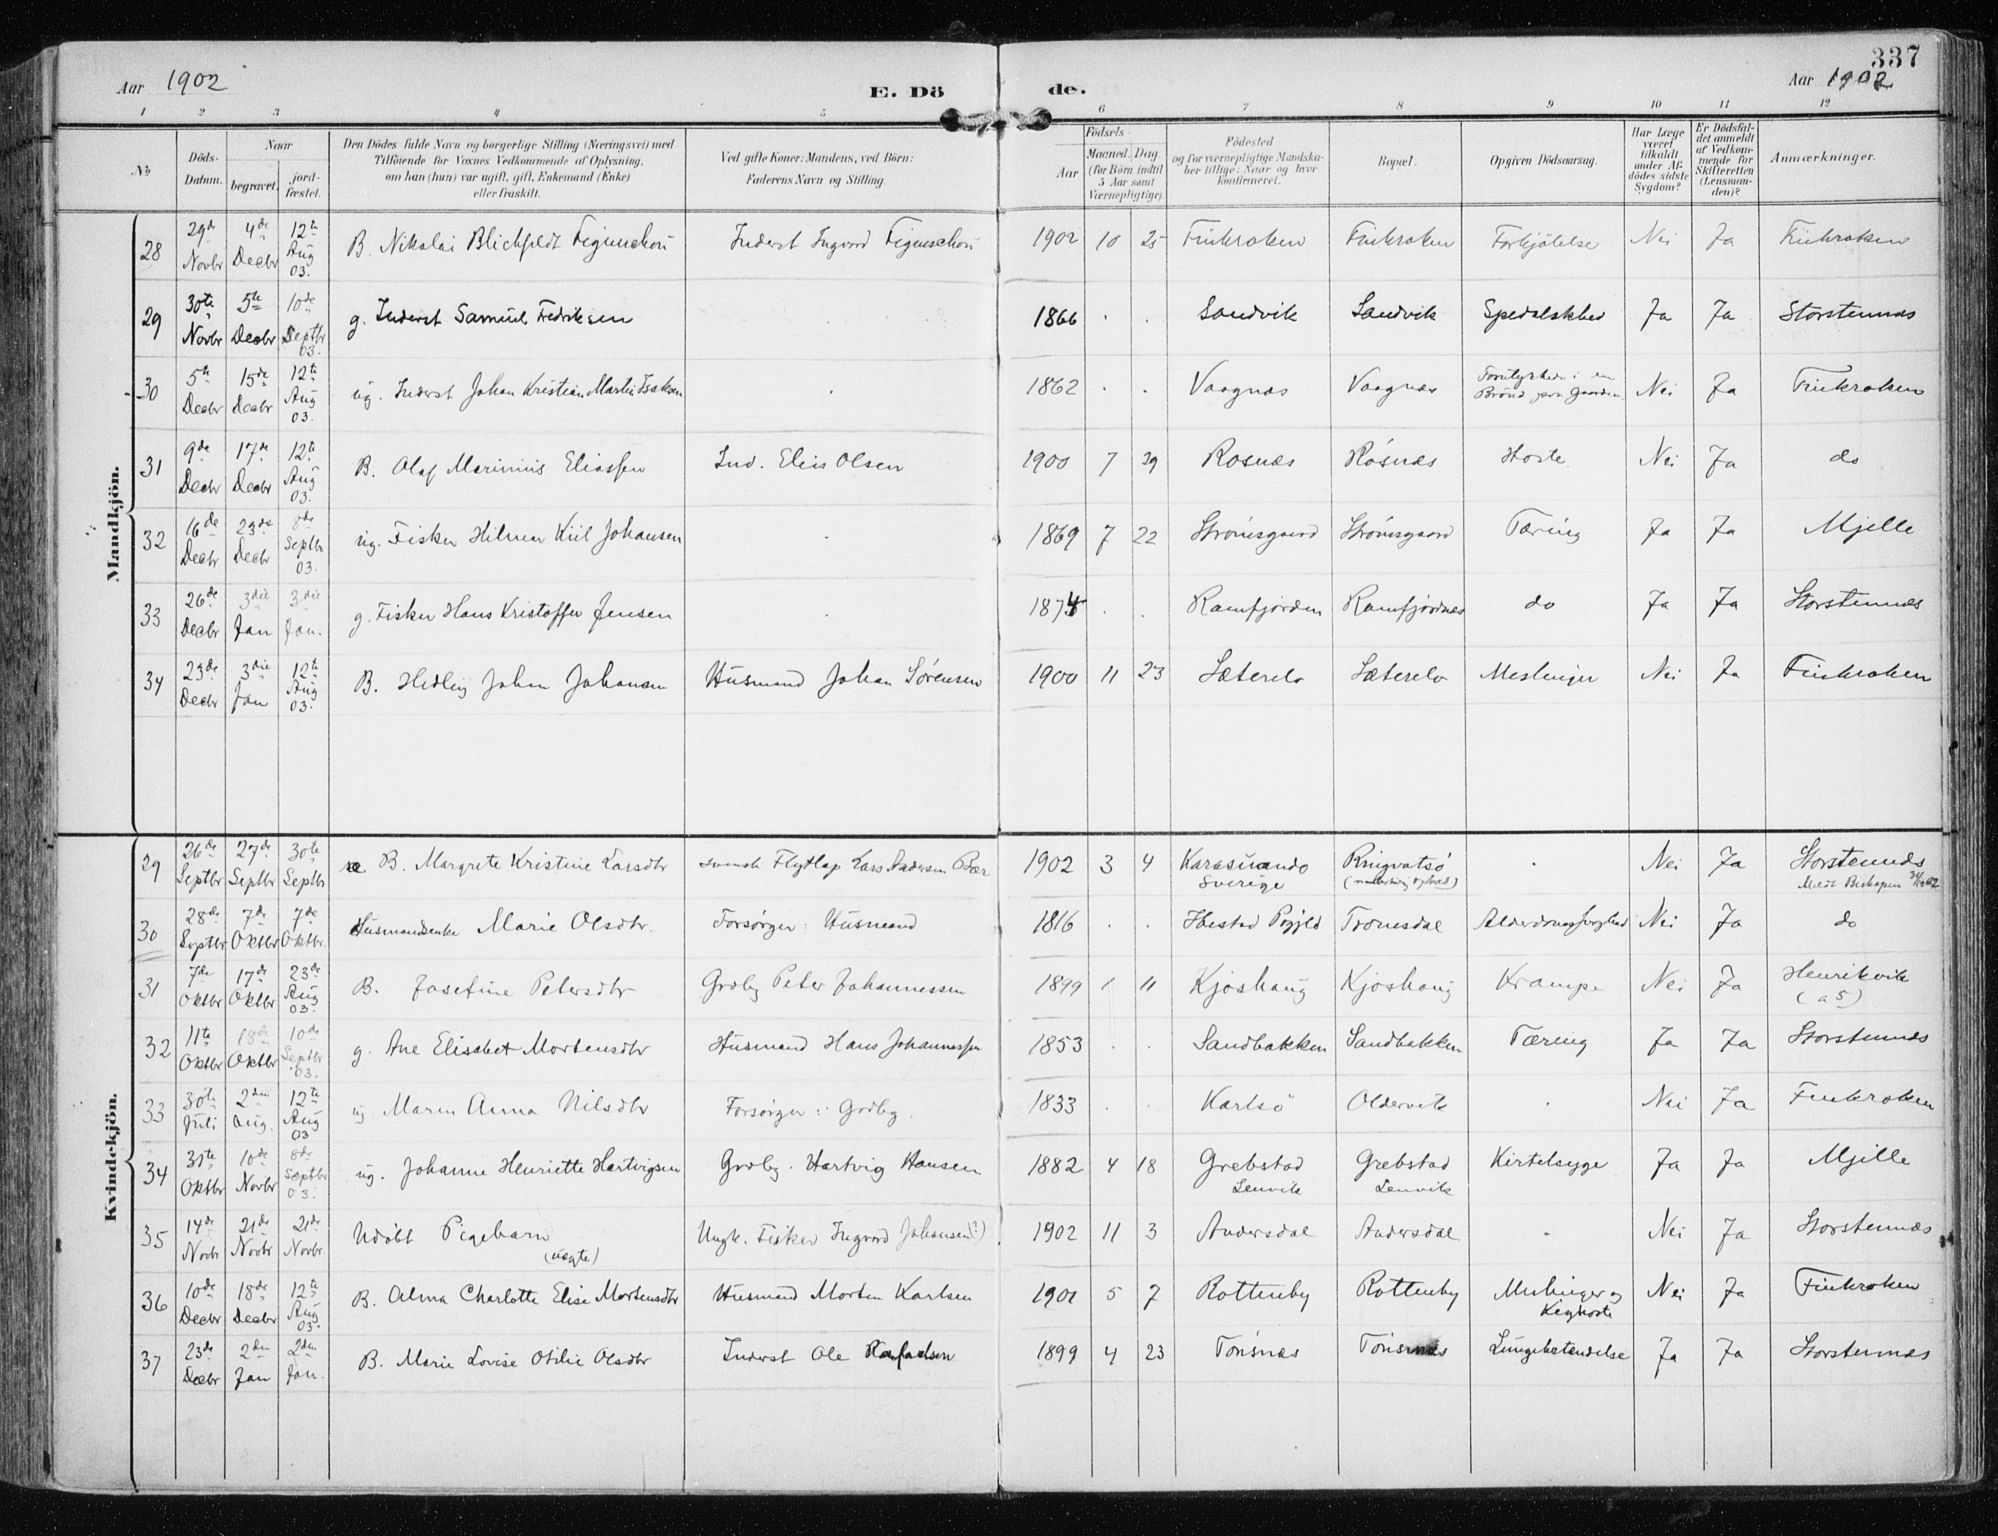 337
Aar 1902
E. Dö
de.
Aar 1902
1 2 3 4 5 6 7 8 9 10 11 12
№
Döds-
Datum.
Naar
begravet.
jord-
fæstet.
Den Dödes fulde Navn og borgerlige Stilling (Næringsvei) med
Tilföiende for Voxnes Vedkommende af Oplysning,
om han (hun) var ugift, gift, Enkemand (Enke)
eller fraskilt.
Ved gifte Koner: Mandens, ved Börn:
Faderens Navn og Stilling.
Födsels-
Aar
Maaned. Dag.
(for Börn indtil
5 Aar samt
Værnepligtige)
Födested
og for værnepligtige Mandska-
ber tillige: Naar og hvor
konfirmeret.
Bopæl.
Opgiven Dödsaarsag.
Har Læge
været
tilkaldt
under Af-
dödes sidste
Sygdom?
Er Dödsfal-
det anmeldt
af Vedkom-
mende for
Skifteretten
(Lensman-
den)?
Anmærkninger.
Mandkjön.
28 29de Novbr 4de Decbr 12te Aug 03. B. Nikolai Blichfeldt Figenschou Inderst Ingvard Figenschou 1902 10 25 Finkroken Finkroken Forkjölelse Nei Ja Finkroken
29 30te Novbr 5te Decbr 10de Septbr 03. g. Inderst Samuel Fredriksen 1866 . . Sandvik Sandvik Spedalskhed Ja Ja Storstennæs
30 5te Decbr 15de Decbr 12te Aug 03. ug. Inderst Johan Kristian Martin Isaksen . 1862 . . Vaagnæs Vaagnæs i en Brönd paa Gaarden. Nei Ja Finkroken
31 9de Decbr 17de Decbr 12te Aug 03. B. Olaf Marinius Eliassen Ind. Elias Olsen 1900 7 29 Rosnæs Rosnæs Hoste Nei Ja do
32 16de Decbr 23de Decbr 8de Septbr 03. ug. Fisker Hilmar Kiil Johansen . 1869 7 22 Strömsgaard Strömsgaard Tæring Ja Ja Mjelle
33 26de Decbr 3die Jan 3die Jan. g. Fisker Hans Kristoffer Jensen . 1874 . . Ramfjorden Ramfjordnes do Ja Ja Storstennæs
34 23de Decbr 3die Jan 12te Aug 03. B. Hedley Johan Johansen Husmand Johan Sörensen 1900 11 23 Sæterelv Sæterelv Meslinger Nei Ja Finkroken
Kvindekjön.
29 26de Septbr 27de Septbr 30te Septbr B. Margrete Kristine Larsdtr svensk Flytlap Lars Andersen Bær 1902 3 4 Karasuando Sverige Ringvatsö . Nei Ja Storstennæs Meldt Biskopen
30 28de Septbr 7de Oktbr 7de Oktbr. Husmandsenke Marie Olsdtr. Forsörger: Husmand 1816 . . Ibestad Prgjld Tromsdal Alderdomssvaghed Nei Ja do
31 7de Oktbr 17de Oktbr 23de Aug 03. B. Josefine Petersdtr Grdbg Peter Johannessen 1899 1 11 Kjoshaug Kjoshaug Krampe Nei Ja Henrikvik (a 5)
32 11te Oktbr 18de Oktbr 10de Septbr 03. g. Ane Elisabet Mortensdtr Husmand Hans Johannessen 1853 . . Sandbakken Sandbakken Tæring Ja Ja Storstennæs
33 30te Juli 2den Aug. 12te Aug 03 ug Maren Anna Nilsdtr Forsörger: Grdbg. 1833 . . Karlsö Oldervik . Nei Ja Finkroken
34 31te Oktbr 10de Novbr 8de Septbr 03. ug. Johanne Henriette Hartvigsen Grdbg. Hartvig Hansen 1882 4 18 Grebstad Lenvik Grebstad Lenvik Kirtelsyge Ja Ja Mjelle
35 14de Novbr 21de Novbr 21de Novbr. Udöbt Pigebarn (uægte) Ungk. Fisker Ingvard Johansen 1902 11 3 Andersdal Andersdal . Nei Ja Storstennæs
36 10de Decbr 18de Decbr 12te Aug 03. B. Alma Charlotte Elise Mortensdtr Husmand Morten Karlsen 1901 5 7 Rottenby Rottenby Meslinger og Kighoste Nei Ja Finkroken
37 23de Decbr 2den Jan 2den Jan. B. Marie Lovise Otilie Olsdtr Inderst Ole Rafaelsen 1899 4 23 Tönsnæs Tönsnæs Lungebetændelse Ja Ja Storstennæs